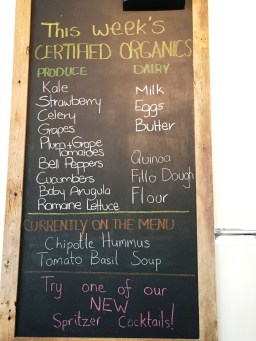 This week's
CERTIFIED ORGANICS
PRODUCE
Kale
Strawberry
Celery
Grapes
Plum+Grape
Tomatoes
Bell Peppers
Cucumbers
Baby Arugula
Romaine Lettuce
DAIRY
Milk
Eggs
Butter
Quinoa
Fillo Dough
Flour
CURRENTLY ON THE MENU
Chipotle Hummus
Tomato Basil Soup
Try one of our
NEW
Spritzer Cocktails!